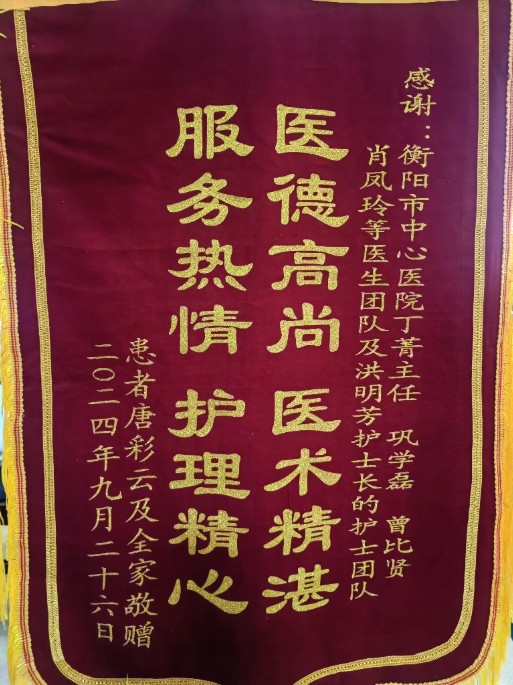 感谢：衡阳市中心医院丁菁主任 巩学磊 曾比贤
肖凤玲等医生团队及洪明芳护士长的护士团队
医德高尚 医术精湛
服务热情 护理精心
患者唐彩云及全家敬赠
二〇二四年九月二十六日